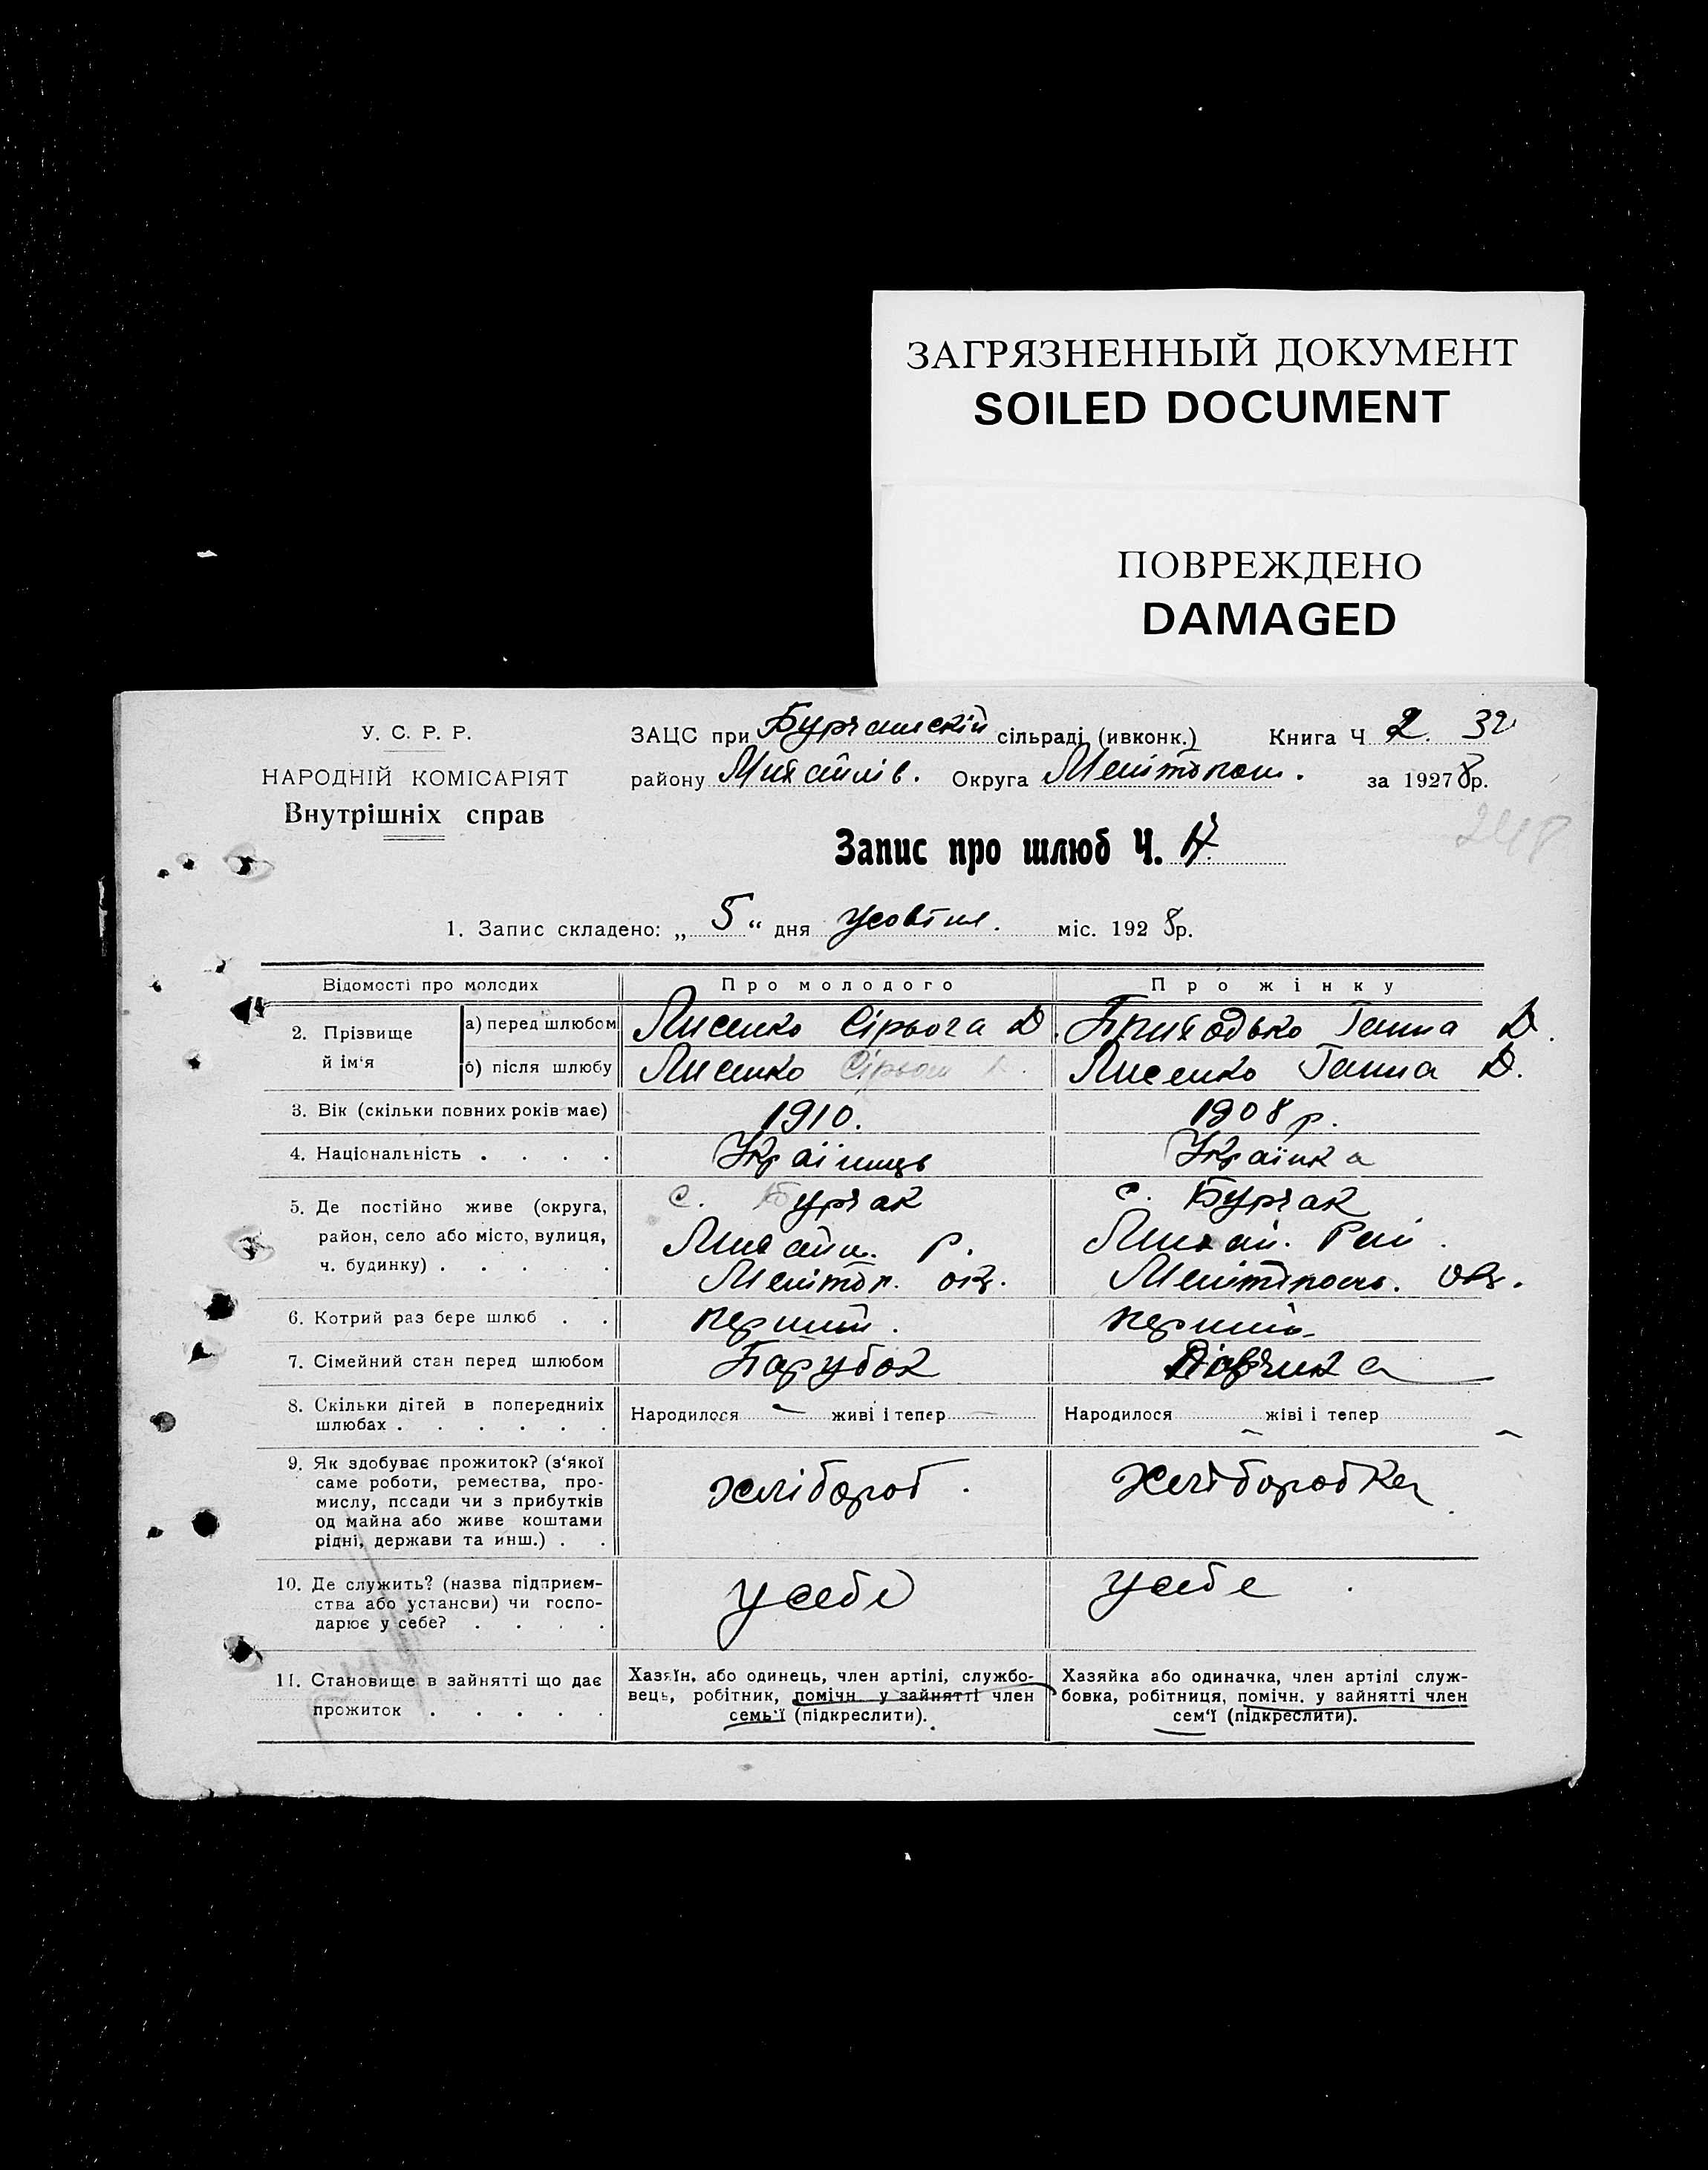 ЗАГРЯЗНЕННЫЙ ДОКУМЕНТ
SOILED DOCUMENT
ПОВРЕЖДЕНО
DAMAGED
У. С. Р. Р.
НАРОДНІЙ КОМІСАРІЯТ
Внутрішніх справ
ЗАЦС при Бурчашскій сільраді (ивконк.) Книга Ч 2. 32
району Михайлів. Округа Мелітопол. за 1927 8р.
Запис про шлюб Ч.
248
1. Запис складено: „ 5 “ дня жовтня. міс. 192 8р.
Відомості про молодих Про молодого Про жінку
2. Прізвище й ім'я
а) перед шлюбом Лисенко Сірьога Д. Приходько Ганна Д.
б) після шлюбу Лисенко Сірьога Лисенко Ганна Д.
3. Вік (скільки повних років має) 1910. 1908 р.
4. Національність . . . . Українець Українка
5. Де постійно живе (округа, с. Бурчак с. Бурчак
район, село або місто, вулиця, Михайл. р. Михай. Рай.
ч. будинку) . . . . . Мелітоп. окр. Мелітополь. окр.
6. Котрий раз бере шлюб . . перший. перший
7. Сімейний стан перед шлюбом Парубок Дівчина
8. Скільки дітей в попередніх
шлюбах . . . . . .
Народилося — живі і тепер — Народилося живі і тепер
9. Як здобуває прожиток? (з'якої
саме роботи, ремества, про-
мислу, посади чи з прибутків
од майна або живе коштами
рідні, держави та инш.) . .
хлібороб. хлібороб ка
10. Де служить? (назва підприєм-
ства або установи) чи госпо-
дарює у себе? . . . .
у себе у себе
11. Становище в зайнятті що дає
прожиток . . . . .
Хазяїн, або одинець, член артілі, службо-
вець, робітник, помічн. у зайнятті член
семь'ї (підкреслити).
Хазяйка або одиначка, член артілі служ-
бовка, робітниця, помічн. у зайнятті член
сем'ї (підкреслити).